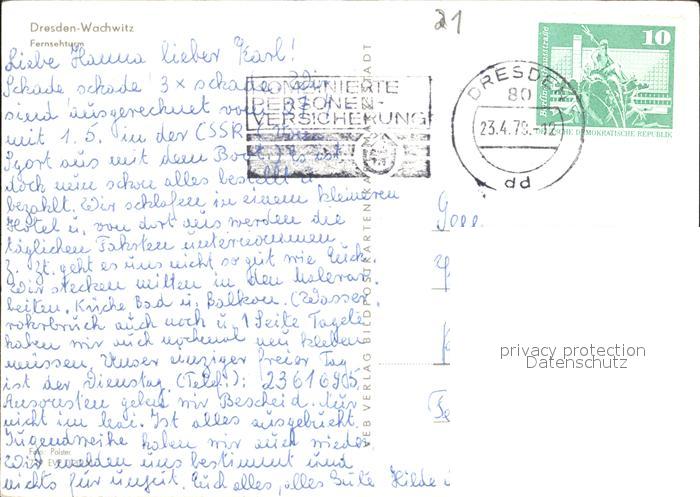 Dresden-Wachwitz
Fernsehturm
Liebe Hanna lieber Karl!
Schade schade 3 x schade. Wir
sind ausgerechnet vom
mit 1.5. in der CSSR
Sport aus mit dem Boot. Es ist
doch nun schon alles bestellt u
bezahlt. Wir schlafen in einem kleineren
Hotel u. von dort aus werden die
täglichen Fahrten unternommen
Z. Zt. geht es uns nicht so gut wie Euch.
Wir stecken mitten in den Malerar-
beiten. Küche Bad u. Balkon. (Wasser-
rohrbruch auch noch u. 1 Seite Tapete
haben wir auch nochmal neu kleben
müssen. Unser einziger freier Tag
ist der Dienstag. (Telef.): 23616905
Ansonsten geben wir Bescheid. Nur
nicht im Mai. Ist alles ausgebucht.
Jugendweihe haben wir auch wieder
Wir melden uns bestimmt und
nichts für ungut. Euch alles, alles Gute Hilde
Foto: Polster
VEB VERLAG BILDPOSTKARTEN
21
KOMBINIERTE
PERSONEN-
VERSICHERUNG
DRESDEN
80
23.4.79.-12
pd
10
DEUTSCHE DEMOKRATISCHE REPUBLIK
privacy protection
Datenschutz